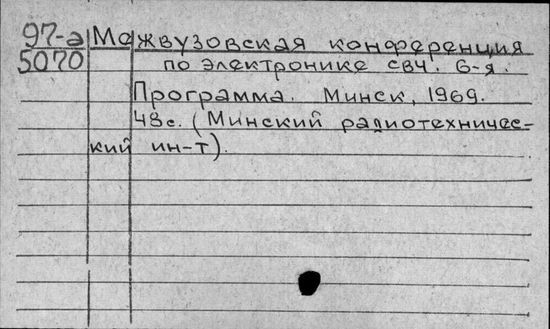 97-а Межвузовская конференция
5070 по электронике свч. 6-я.
Программа. Минск, 1969.
48с. (Минский радиотехничес-
кий ин-т).